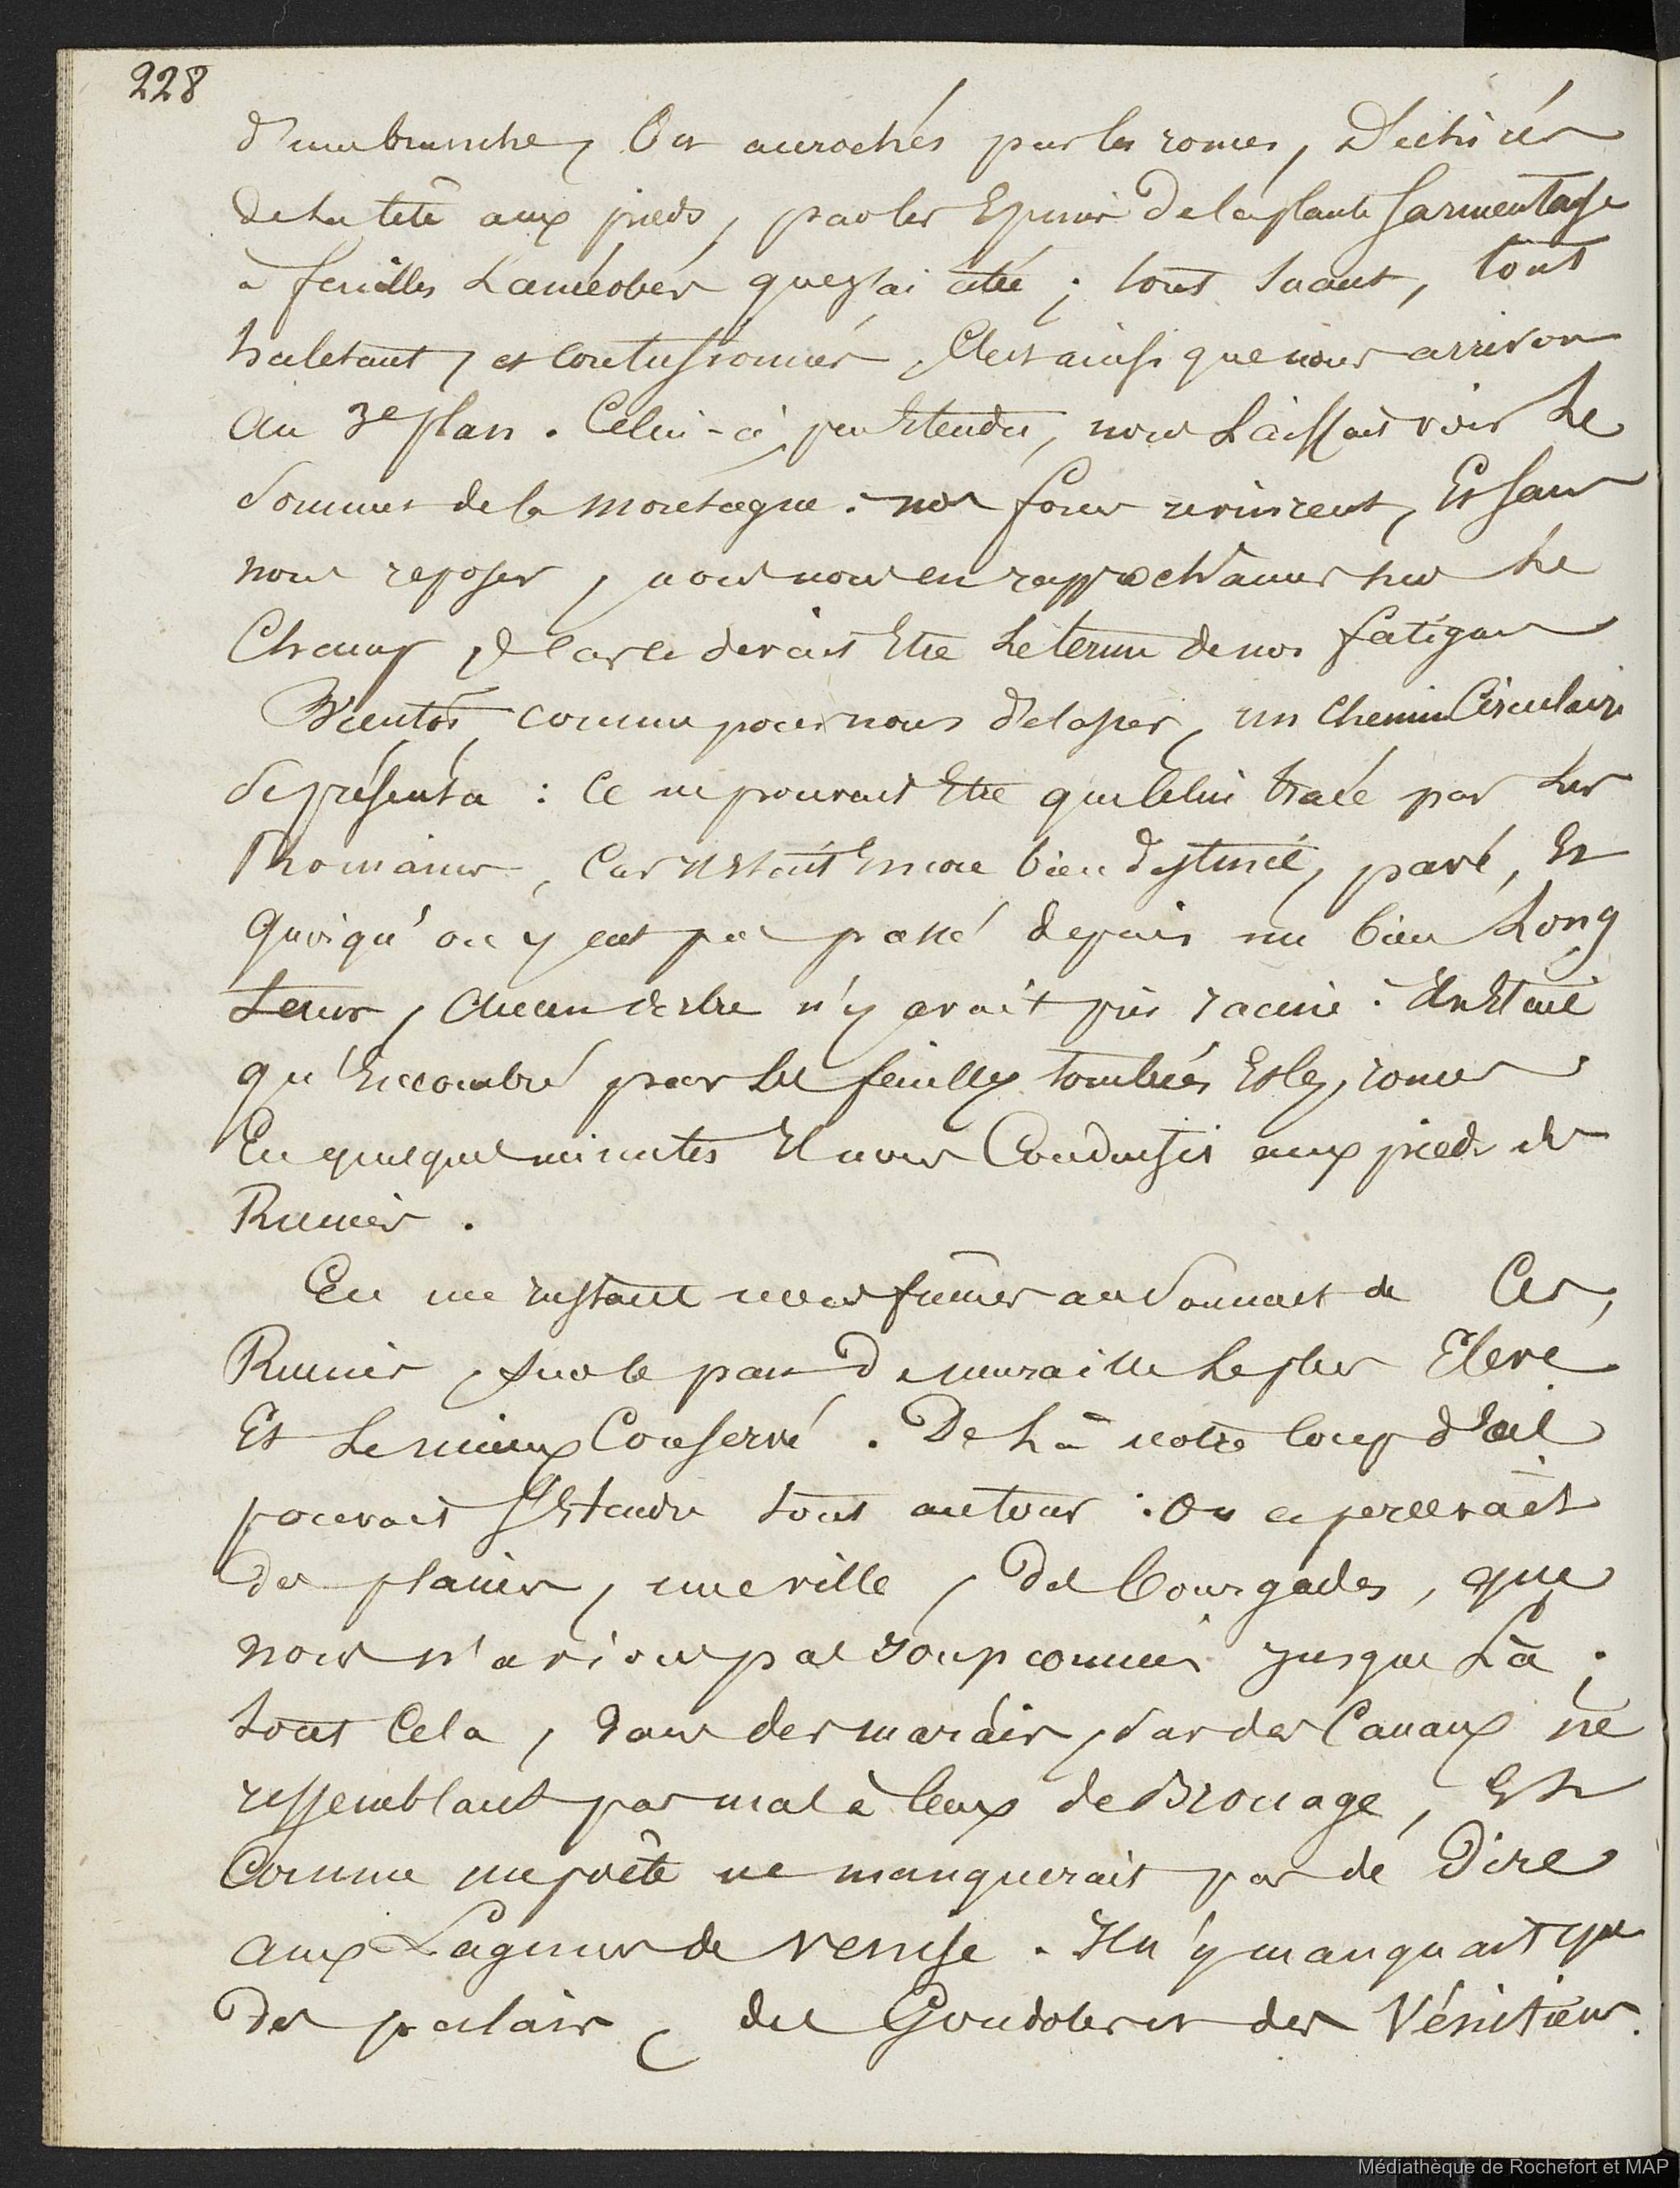 228
d'une branche, Ou accrochés par les ronces, Déchirés
de la tête aux pieds, par les Epines de la plante Sarmentase
a feuilles Lancéolées que j'ai citée ; tout suant, tout
haletant, et contusionnés. C'est ainsi que nous arrivons
au 3e plan. Celui-ci, peu Etendu, nous Laissait voir Le
Sommet de la Montagne. nos forces revinrent, Et Sans
nous reposer, nous nous en rapprochâmes sur Le
Champ, Là devait Etre Le terme de nos fatigues
Bientôt, comme pour nous délasser, un Chemin Circulaire
Se présenta : Ce ne pouvait Etre que Celui tracé par Les
Romains, Car il Etait Encore bien distinct, pavé, Et
Quoiqu'on y eut pas passé depuis un bien Long
tems, Aucun arbre n'y avait pris racine. Il n'Etait
qu'Encombré par les feuilles tombées Et les ronces
En quelques minutes Il nous Conduisit aux pieds des
Ruines.
En un instant nous fûmes au Sommet de Ces,
Ruines, Sur le pan de muraille Le plus Elevé
Et Le mieux Conservé. De Là notre Coup d'œil
pouvait S'Etendre tout autour : On apercevait
des plaines, une ville, Des Bourgades, que
nous n'avions pas soupçonnées jusque Là ;
tout Cela, dans des marais, par des Canaux ne
ressemblant pas mal à Ceux de Brouage, Et
Comme un poête ne manquerait pas de Dire
aux Lagunes de Venise. Il n'y manquait que
Des palais, des Gondoles et des Vénitiens.
Médiathèque de Rochefort et MAP